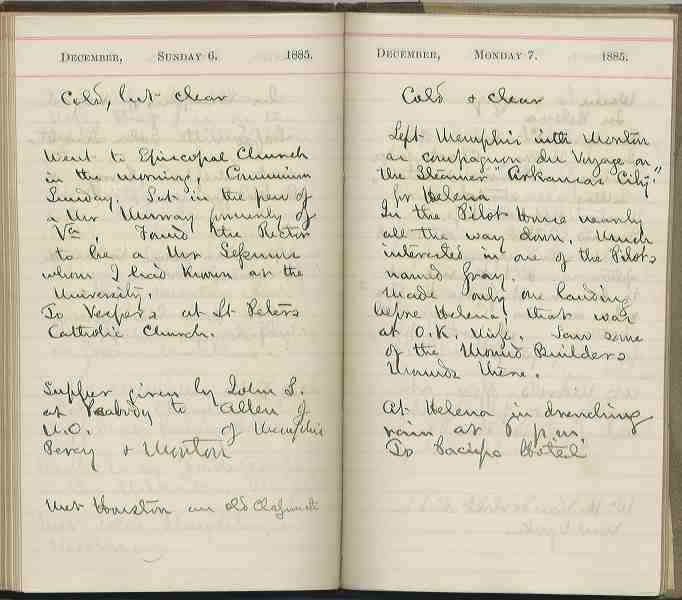 DECEMBER, SUNDAY 6. 1885.
Cold, but clear
Went to Episcopal Church
in the morning, Communion
Sunday. Sat in the pew of
a Mr Murray formerly of
Va. Found the Rector
to be a Mr.
whom I had known at the
University.
To Vespers at St Peters
Catholic Church.
Supper given by John S.
at Peabody to Allen of
N.O. of Memphis
Percy & Morton
Met Houston an old Classmate
DECEMBER, MONDAY 7. 1885.
Cold & clear
Left Memphis with Morton
as compagnon du Voyage on
the Steamer "Arkansas City"
for Helena
In the Pilot House nearly
all the way down. Much
interested in one of the Pilots
named Gray.
Made only one landing
before Helena, that was
at O.K. Saw some
of the Mound Builders
Mounds there.
At Helena in drenching
rain at 8 p.m.
To Hotel